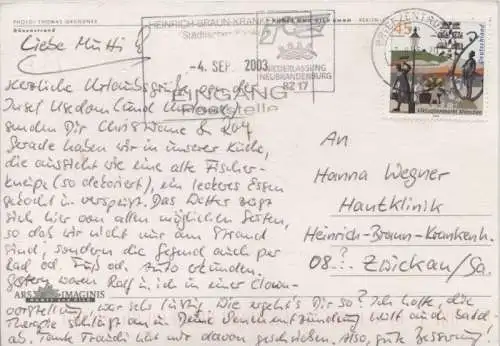 PHOTO: THOMAS GRUNDNER
Dünenstrand
Liebe Mutti!
HEINRICH-BRAUN-KRANKEN
Städtisches
-4. SEP. 2003
EINGANG
Poststelle
NIEDERLASSUNG
NEUBRANDENBURG
BZ 17
BRIEFZENTRUM
45
Deutschland
Herzliche Urlaubsgrüße von der
Insel Usedom (und Umgebung)
senden Dir Christiane & Ralf
Gerade haben wir in unserer Küche,
die aussieht wie eine alte Fischer-
kneipe (so dekoriert), ein leckeres Essen
gekocht u. verspeist. Das Wetter zeigt
sich hier von allen möglichen Seiten,
so daß wir nicht nur am Strand
sind, sondern die Gegend auch per
Rad od. Fuß od. Auto erkunden.
Gestern waren Ralf u. ich in einer Clown-
vorstellung, war sehr lustig. Wie ergeht's Dir so? Ich hoffe, die
Therapie schlägt an u. Deine Venenentzündung hält auch bald
an. Tante Traudi hat mir davon geschrieben. Also, gute Besserung!
ARS IMAGINIS
An
Hanna Wegner
Hautklinik
Heinrich-Braun-Krankenh.
08? Zwickau/Sa.